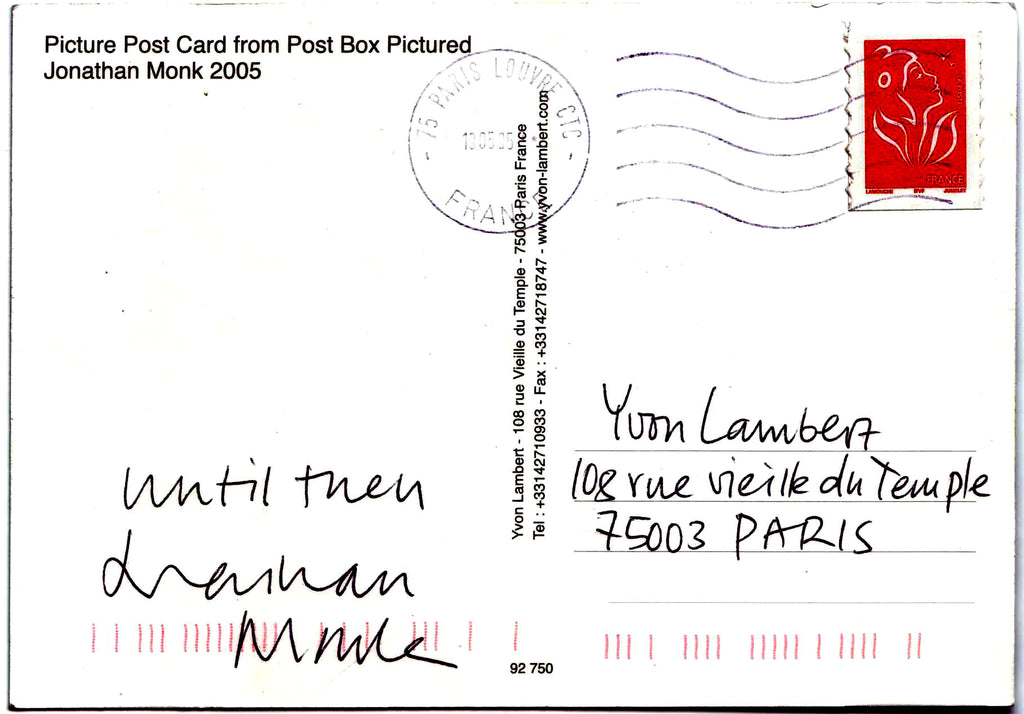 Picture Post Card from Post Box Pictured
Jonathan Monk 2005
75 PARIS LOUVRE CTC
FRANCE
FRANCE
LAMOUCHE ITVF JUMELET
Yvon Lambert - 108 rue Vieille du Temple - 75003 Paris France
Tel : +33142710933 - Fax : +33142718747 - www.yvon-lambert.com
until then
Jonathan
Monk
Yvon Lambert
108 rue vieille du Temple
75003 PARIS
92 750